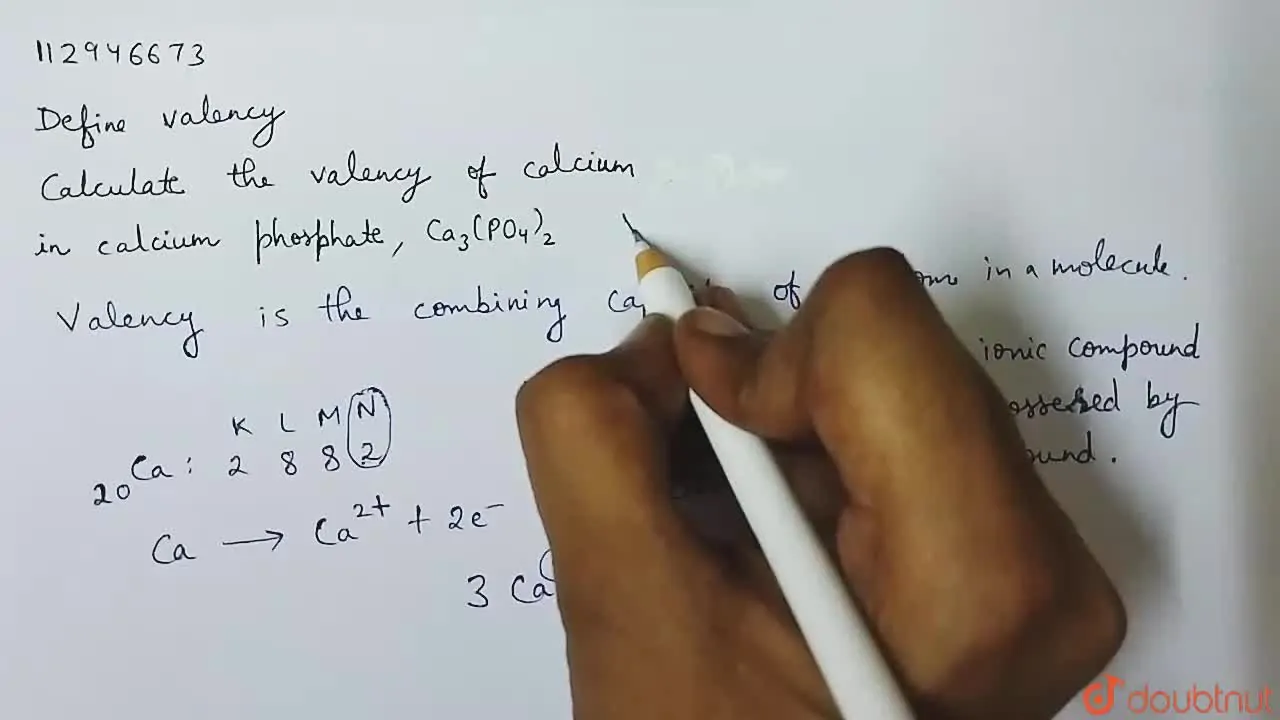 112946673
Define valency
Calculate the valency of calcium
in calcium phosphate, Ca₃(PO₄)₂
Valency is the combining of in a molecule.
ionic compound
by
K L M N
₂₀Ca: 2 8 8 2
Ca → Ca²⁺ + 2e⁻
3 Ca
doubtnut